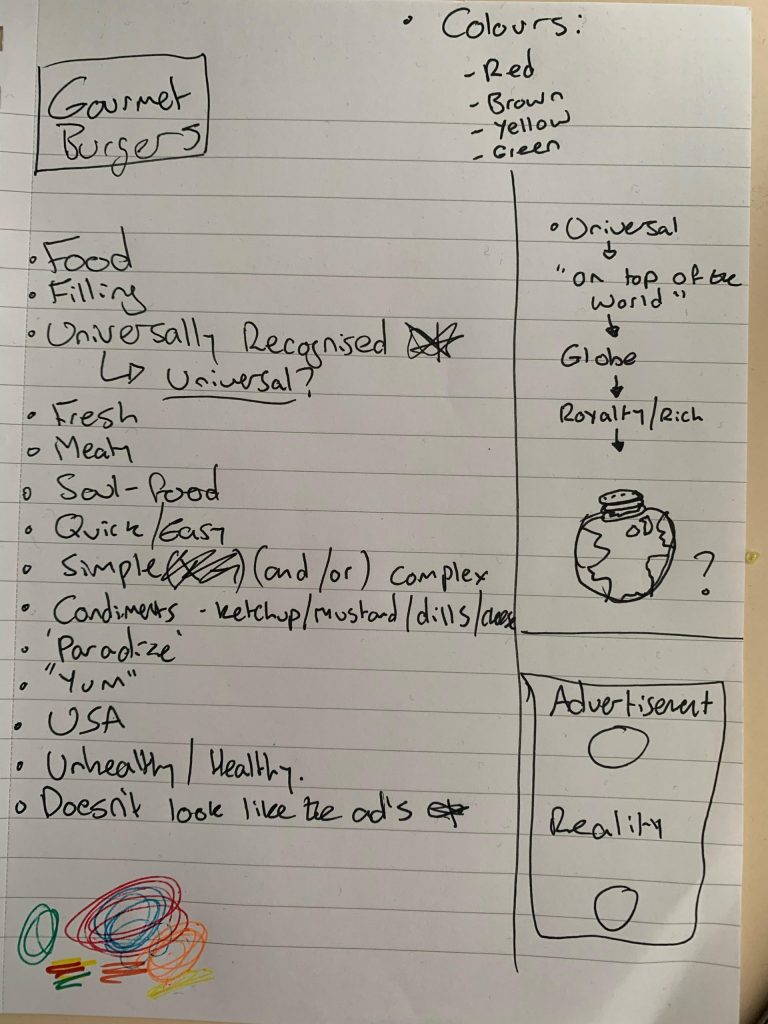 Gourmet
Burgers
• Colours:
- Red
- Brown
- Yellow
- Green
• Food
• Filling
• Universally Recognised
↳ Universal?
• Fresh
• Meaty
• Soul-food
• Quick/Easy
• Simple (and/or) complex
• Condiments - ketchup/mustard/dills/cheese
• 'Paradize'
• "YUM"
• USA
• Unhealthy/Healthy.
• Doesn't look like the ad's
• Universal
↓
"on top of the
world"
↓
Globe
↓
Royalty/Rich
↓
?
Advertisement
Reality